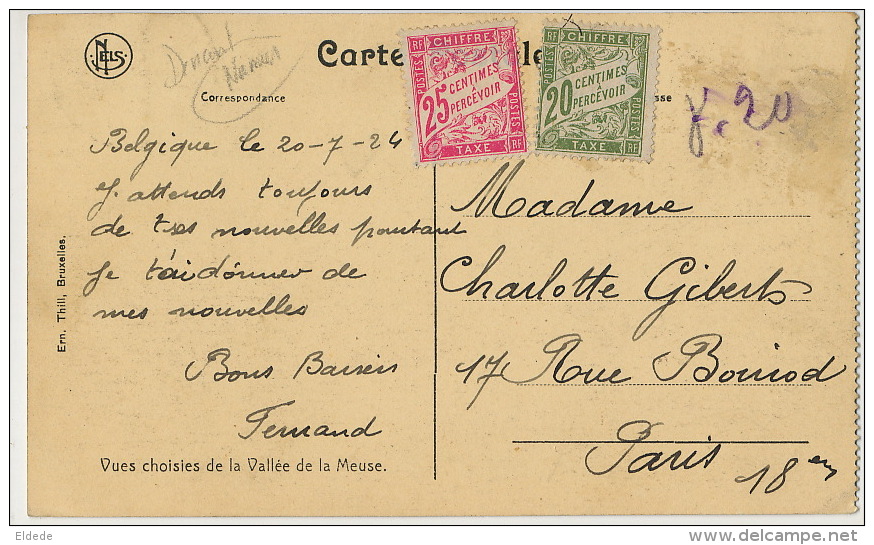 NELS
Carte
Correspondance
Namur
RF CHIFFRE
POSTES
25 CENTIMES
À
PERCEVOIR
POSTES
TAXE RF
RF CHIFFRE
POSTES
20 CENTIMES
À
PERCEVOIR
POSTES
TAXE RF
sse
Belgique le 20-7-24
J. attends toujours
de tes nouvelles pourtant
je t'ai donner de
mes nouvelles
Bons Baisers
Fernand
Madame
Charlotte Giberts
17 Rue Boinod
Paris
18 em
Ern. Thill, Bruxelles.
Vues choisies de la Vallée de la Meuse.
Eldede
© delcampe.net